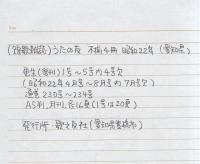 (短歌雑誌) うたの友 不揃4冊 昭和22年 (愛知県)
発生(発刊) 1号~5号内4号欠
(昭和22年4月号~8月号内7月号欠)
通巻230号~234号
A5判、月刊、各16頁(1号は20頁)
発行所・歌之友社(愛知県豊橋市)